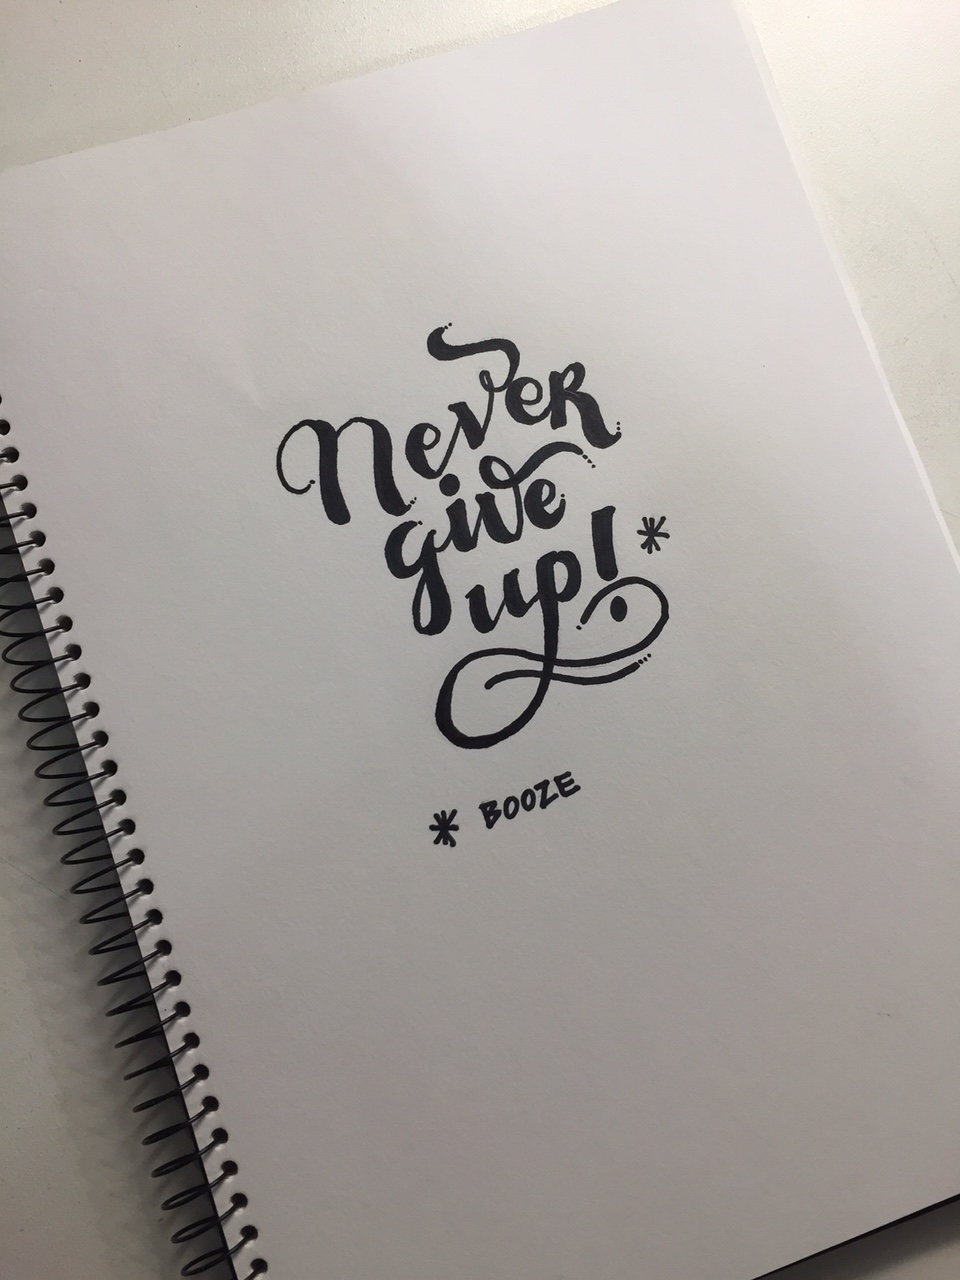 Never
give
up!*
* BOOZE